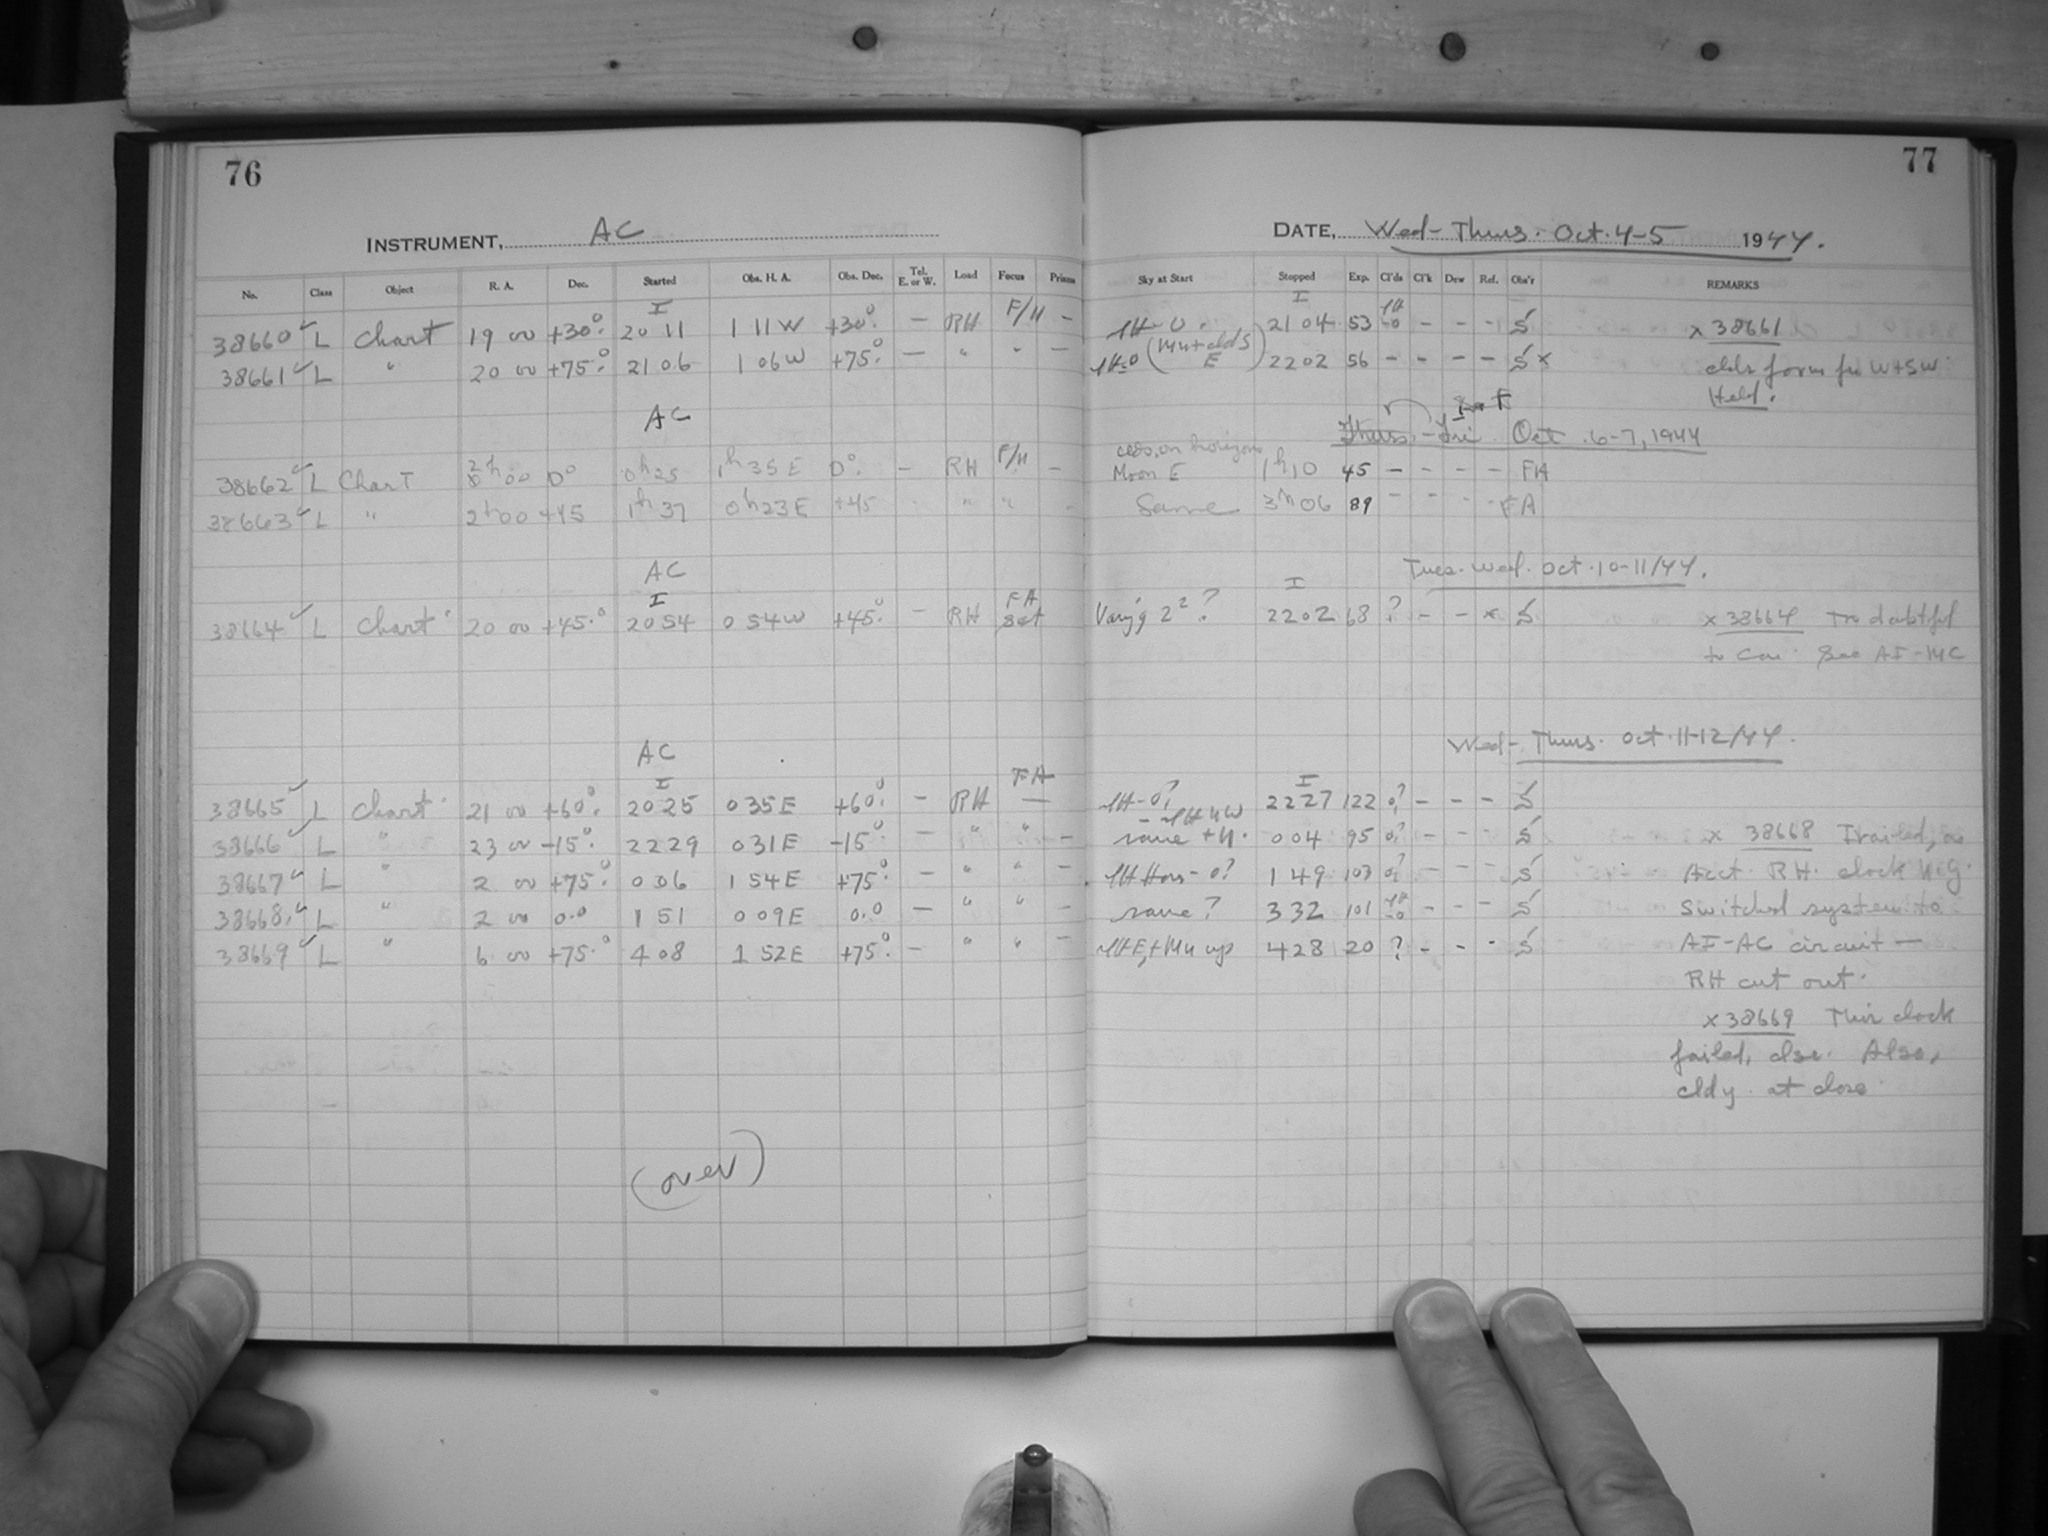 76
77
INSTRUMENT, AC
DATE, Wed- Thurs. Oct. 4-5 1944.
No. Class Object R. A. Dec. Started Obs. H. A. Obs. Dec. Tel. E. or W. Load Focus Prisms Sky at Start Stopped Exp. Cl'ds Cl'k Dew Ref. Obs'r REMARKS
I F/11 I
38660 L Chart 19 00 +30°. 20 11 1 11 W +30°. — RH — 21 04 53 - - - S x 38661
38661 L " 20 00 +75°. 21 06 1 06 W +75°. — " " — E 2202 56 - - - - S x clds form fr W+SW
Held.
AC
Fri Oct. 6-7, 1944
on horizon
38662 L Chart 2h 00 0° 0h25 1h 35 E 0°. — RH F/11 — Moon E 1h10 45 - - - - FA
38663 L " 2h00 +45 1h 37 0h23E +45 " " Same 3h06 89 - - - - FA
AC Tues. Wed. Oct. 10-11/44.
I FA I
38664 L Chart 20 00 +45.° 20 54 0 54 W +45.° — RH Set Var'g 2² ? 2202 68 ? - - * S x 38664 Too doubtful
to See AI-MC
AC Wed- Thurs. Oct. 11-12/44.
I FA I
38665 L Chart 21 00 +60°. 20 25 0 35 E +60°. — RH — 2227 122 0? - - - S
38666 L " 23 00 -15°. 22 29 0 31 E -15° — " " — same + 0 04 95 0? - - - S x 38668 Trailed, on
38667 L " 2 00 +75°. 0 06 1 54 E +75° — " " — 1 49 103 0? - - - S Acct. RH. clock N.G.
38668 L " 2 00 0.0 1 51 0 09 E 0.0 — " " — same ? 3 32 101 - - - S Switched system to
38669 L " 6 00 +75.° 4 08 1 52 E +75° — " " — up 4 28 20 ? - - - S AI-AC circuit —
RH cut out.
x 38669 This clock
failed, also. Also,
cldy. at close.
(over)